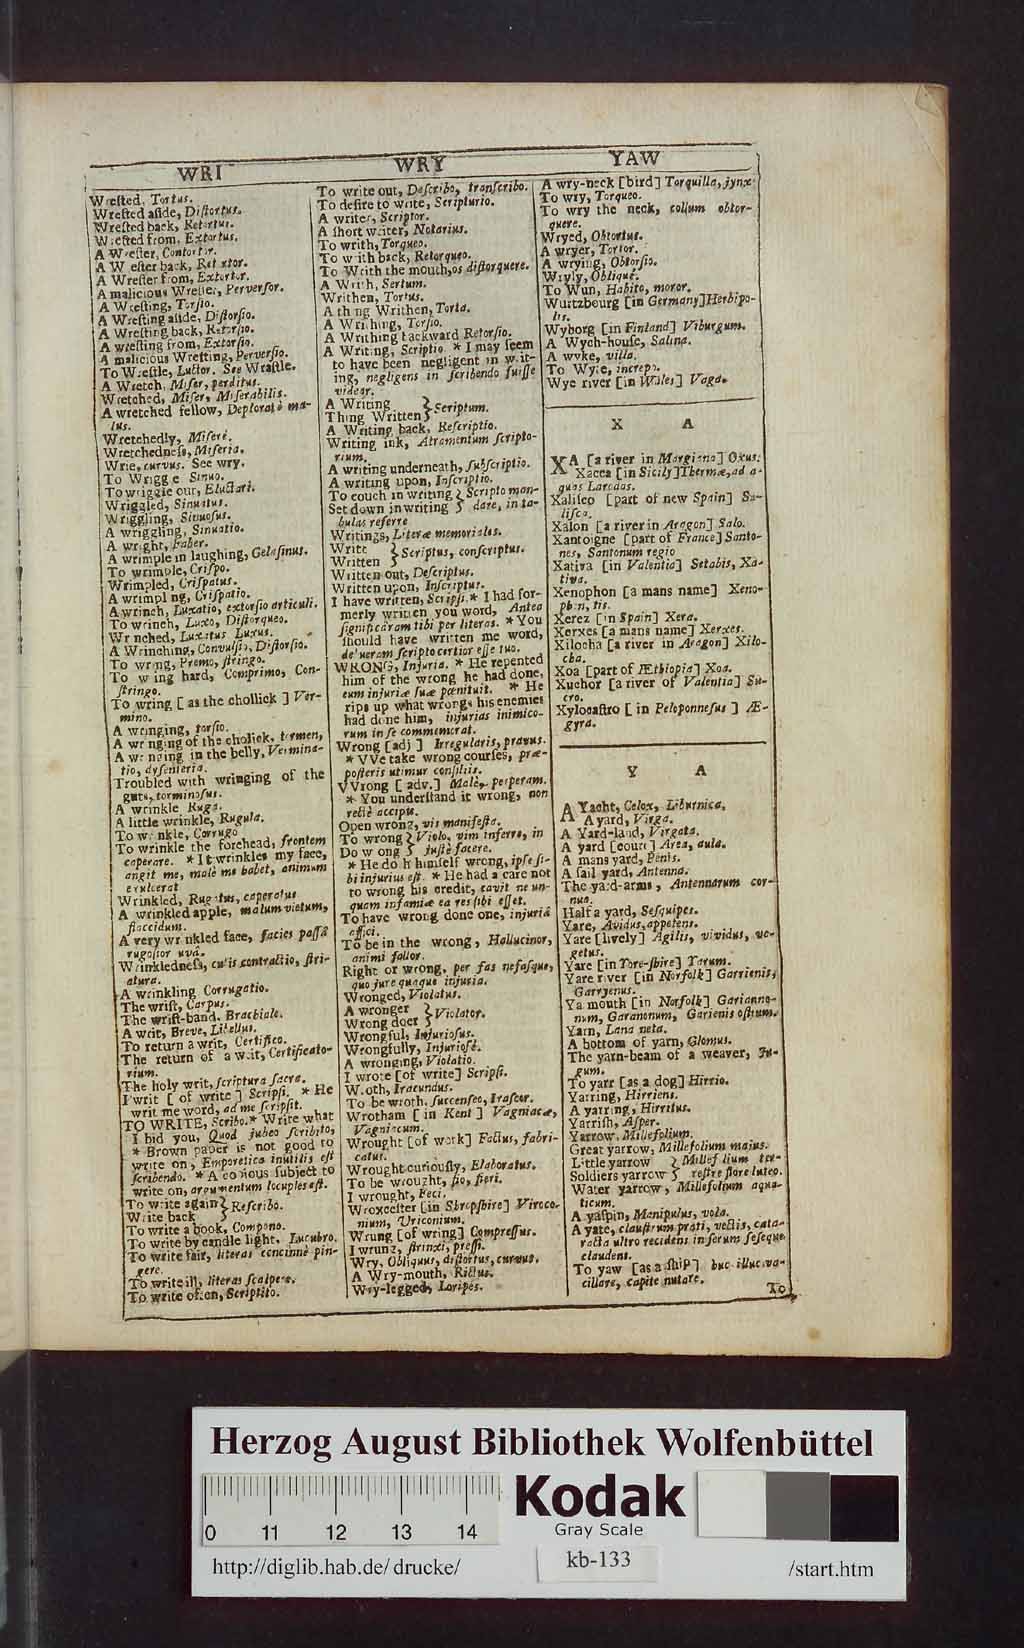 WRI
WRY
YAW
Wrested, Tortus.
Wrested aſide, Diſtortus.
Wreſted back, Retortus.
Wreſted from, Extortus.
A Wreſter, Contortor.
A W eſter back, Ret rtor.
A Wreſter from, Extortor.
A malicious Wreſter, Perverſor.
A Wreſting, Torſio.
A Wreſting aſide, Diſtorſio.
A Wreſting back, Retorſio.
A wreſting from, Extorſio.
A malicious Wreſting, Perverſio.
To Wreſtle, Luctor. See Wraſtle.
A Wretch, Miſer, perditus.
Wretched, Miſer, Miſerabilis.
A wretched fellow, Deploratè ma-
lus.
Wretchedly, Miſerè.
Wretchedneſs, Miſeria.
Wrie, curvus. See wry.
To Wrigg e Sinuo.
To wriggle out, Eluctari.
Wriggled, Sinuatus.
Wriggling, Sinuoſus.
A wriggling, Sinuatio.
A wright, Faber.
A wrimple in laughing, Gelaſinus.
To wrimple, Criſpo.
Wrimpled, Criſpatus.
A wrimpl ng, Criſpatio.
A wrinch, Luxatio, extorſio articuli.
To wrinch, Luxo, Diſtorqueo.
Wr nched, Luxatus Luxus.
A Wrinching, Convulſio, Diſtorſio.
To wring, Premo, ſtringo.
To w ing hard, Comprimo, Con-
ſtringo.
To wring [ as the chollick ] Ver-
mino.
A wringing, torſio.
A wr nging of the cholick, tormen,
A wr nging in the belly, Vermina-
tio, dyſenteria.
Troubled with wringing of the
guts, torminoſus.
A wrinkle Ruga.
A little wrinkle, Rugula.
To wr nkle, Corrugo
To wrinkle the forehead, frontem
caperare. * It wrinkles my face,
angit me, malè me habet, animum
exulcerat
Wrinkled, Rugatus, caperatus
A wrinkled apple, malum vietum,
flaccidum.
A very wr nkled face, facies paſſâ
rugoſior uvâ.
Wrinkledneſs, cutis contractio, ſtri-
atura.
A wrinkling Corrugatio.
The wriſt, Carpus.
The wriſt-band. Brachiale.
A writ, Breve, Libellus.
To return a writ, Certifico.
The return of a writ, Certificato-
rium.
The holy writ, ſcriptura ſacra.
I writ [ of write ] Scripſi. * He
writ me word, ad me ſcripſit.
TO WRITE, Scribo.* Write what
I bid you, Quod jubeo ſcribito,
* Brown paper is not good to
write on, Emporetica inutilis eſt
ſcribendo. * A copious ſubject to
write on, argumentum locuples eſt.
To write again } Reſcribo.
Write back
To write a book, Compono.
To write by candle light, Lucubro.
To write fair, literas concinnè pin-
gere.
To write ill, literas ſcalpere.
To write often, Scriptito.
To write out, Deſcribo, tranſcribo.
To deſire to write, Scripturio.
A writer, Scriptor.
A ſhort writer, Notarius.
To writh, Torqueo.
To writh back, Retorqueo.
To Writh the mouth, os diſtorquere.
A Writh, Sertum.
Writhen, Tortus.
A th ng Writhen, Torta.
A Writhing, Torſio.
A Writhing backward Retorſio.
A Writing, Scriptio. * I may ſeem
to have been negligent in writ-
ing, negligens in ſcribendo fuiſſe
videar.
A Writing } Scriptum.
Thing Written
A Writing back, Reſcriptio.
Writing ink, Atramentum ſcripto-
rium.
A writing underneath, ſubſcriptio.
A writing upon, Inſcriptio.
To couch in writing } Scripto man-
Set down in writing } dare, in ta-
bulas referre
Writings, Literæ memoriales.
Write } Scriptus, conſcriptus.
Written
Written out, Deſcriptus.
Written upon, Inſcriptus.
I have written, Scripſi.* I had for-
merly written you word, Antea
ſignificaram tibi per literas. * You
ſhould have written me word,
debueram ſcripto certior eſſe tuo.
WRONG, Injuria. * He repented
him of the wrong he had done,
eum injuriæ ſuæ pœnituit. * He
rips up what wrongs his enemies
had done him, injurias inimico-
rum in ſe commemorat.
Wrong [adj ] Irregularis, pravus.
* VVe take wrong courſes, præ-
poſteris utimur conſiliis.
VVrong [ adv.] Malè, perperam.
* You underſtand it wrong, non
rectè accipis.
Open wrong, vis manifeſta.
To wrong } Violo, vim inferre, in
Do wrong } juſtè facere.
* He doth himſelf wrong, ipſe ſi-
bi injurius eſt. * He had a care not
to wrong his credit, cavit ne un-
quam infamiæ ea res ſibi eſſet.
To have wrong done one, injuriâ
affici.
To be in the wrong, Hallucinor,
animi fallor.
Right or wrong, per fas nefaſque,
quo jure quaque injuria.
Wronged, Violatus.
A wronger } Violator.
Wrong doer
Wrongful, Injurioſus.
Wrongfully, Injurioſè.
A wronging, Violatio.
I wrote [of write] Scripſi.
Wroth, Iracundus.
To be wroth, ſuccenſeo, Iraſcor.
Wrotham [ in Kent ] Vagniacæ,
Vagniacum.
Wrought [of work] Factus, fabri-
catus.
Wrought curiouſly, Elaboratus.
To be wrought, fio, fieri.
I wrought, Feci.
Wroxceſter [in Shropſhire] Viroco-
nium, Uriconium.
Wrung [of wring] Compreſſus.
I wrung, ſtrinxi, preſſi.
Wry, Obliquus, diſtortus, curvus.
A Wry-mouth, Rictus.
Wry-legged, Loripes.
A wry-neck [bird] Torquilla, jynx.
To wry, Torqueo.
To wry the neck, collum obtor-
quere.
Wryed, Obtortus.
A wryer, Tortor.
A wrying, Obtorſio.
Wryly, Obliquè.
To Wun, Habito, moror.
Wurtzbourg [in Germany] Herbipo-
lis.
Wyborg [in Finland] Viburgum.
A Wych-houſe, Salina.
A wyke, villa.
To Wyte, increpo.
Wye river [in Wales] Vaga.
X A
XA [a river in Margiana] Oxus.
Xacca [in Sicily] Thermæ, ad a-
quas Larodas.
Xaliſco [part of new Spain] Sa-
liſca.
Xalon [a river in Aragon] Salo.
Xantoigne [part of France] Santo-
nes, Santonum regio
Xativa [in Valentia] Setabis, Xa-
tiva.
Xenophon [a mans name] Xeno-
phon, tis.
Xerez [in Spain] Xera.
Xerxes [a mans name] Xerxes.
Xilocha [a river in Aragon] Xilo-
cha.
Xoa [part of Æthiopia] Xoa.
Xuchor [a river of Valentia] Su-
cro.
Xylocaſtro [ in Peloponneſus ] Æ-
gyra.
Y A
A Yacht, Celox, Liburnica,
A yard, Virga.
A Yard-land, Virgata.
A yard [court] Area, aula.
A mans yard, Penis.
A ſail yard, Antenna.
The yard-arms, Antennarum cor-
nua.
Half a yard, Seſquipes.
Yare, Avidus, appetens.
Yare [lively] Agilis, vividus, ve-
getus.
Yare [in York-ſhire] Tarum.
Yare river [in Norfolk] Garrienis,
Garryenus.
Ya mouth [in Norfolk] Garianno-
num, Garanonum, Garienis oſtium.
Yarn, Lana neta.
A bottom of yarn, Glomus.
The yarn-beam of a weaver, Ju-
gum.
To yarr [as a dog] Hirrio.
Yarring, Hirriens.
A yarring, Hirritus.
Yarriſh, Aſper.
Yarrow, Millefolium.
Great yarrow, Millefolium majus.
Little yarrow } Millefolium ter-
Soldiers yarrow } reſtre flore luteo.
Water yarrow, Millefolium aqua-
ticum.
A yaſpin, Manipulus, vola.
A yate, clauſtrum prati, vectis, cata-
racta ultro recidens inferum ſeſeque
claudens.
To yaw [as a ſhip] huc illuc va-
cillare, capite nutare.
To
Herzog August Bibliothek Wolfenbüttel
0 11 12 13 14
Kodak
Gray Scale
http://diglib.hab.de/drucke/
kb-133
/start.htm